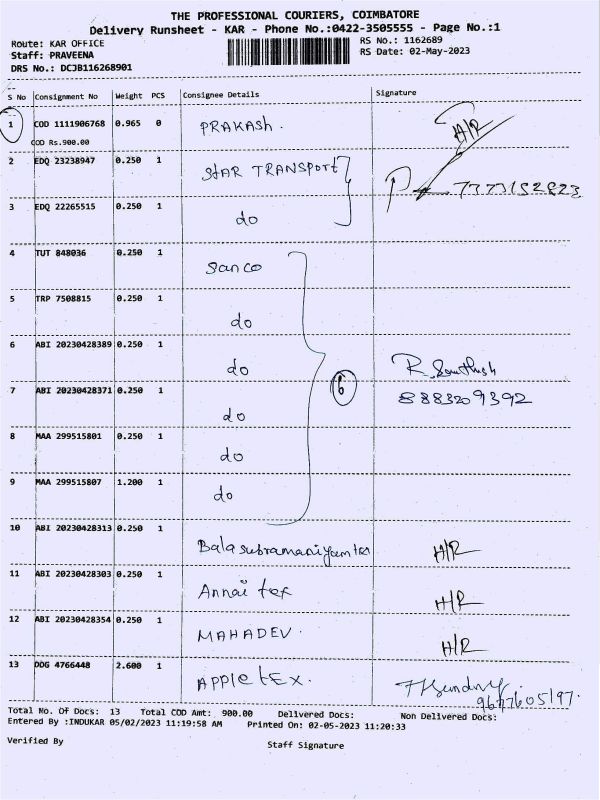 THE PROFESSIONAL COURIERS, COIMBATORE
Delivery Runsheet - KAR - Phone No.:0422-3505555 - Page No.:1
Route: KAR OFFICE
RS No.: 1162689
Staff: PRAVEENA
RS Date: 02-May-2023
DRS No.: DCJB116268901
S No Consignment No Weight PCS Consignee Details Signature
1 COD 1111906768 0.965 0 PRAKASH. H/R
COD Rs.900.00
2 EDQ 23238947 0.250 1 STAR TRANSPORT
3 EDQ 22265515 0.250 1 do
4 TUT 848036 0.250 1 Sanco
5 TRP 7508815 0.250 1 do
6 ABI 20230428389 0.250 1 do 6
7 ABI 20230428371 0.250 1 do 8883209392
8 MAA 299515801 0.250 1 do
9 MAA 299515807 1.200 1 do
10 ABI 20230428313 0.250 1 H/R
11 ABI 20230428303 0.250 1 Annai tex H/R
12 ABI 20230428354 0.250 1 MAHADEV. H/R
13 DDG 4766448 2.600 1 Apple tEX.
9677605197.
Total No. Of Docs: 13 Total COD Amt: 900.00 Delivered Docs: Non Delivered Docs:
Entered By :INDUKAR 05/02/2023 11:19:58 AM Printed On: 02-05-2023 11:20:33
Verified By
Staff Signature